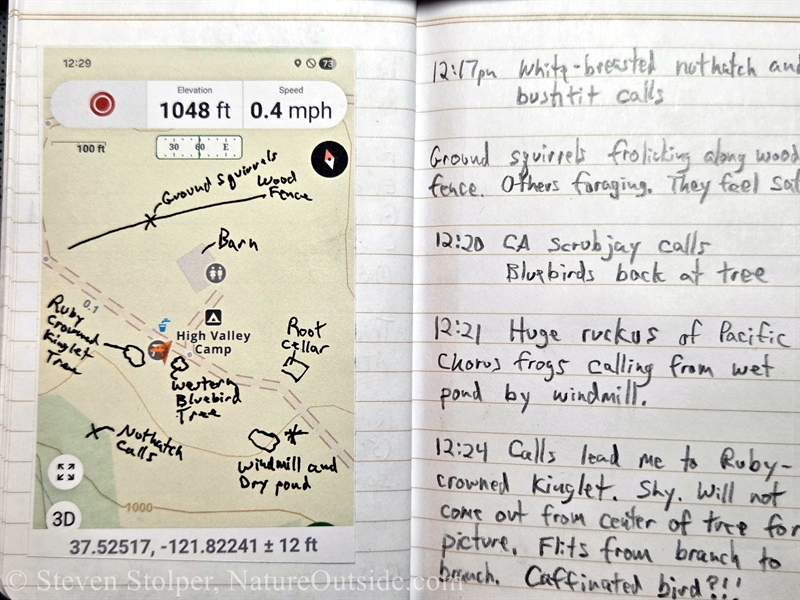 12:29
73
Elevation
1048 ft
Speed
0.4 mph
100 ft
30 60 E
Ground squirrels
Wood
Fence
Barn
0.1
High Valley
Camp
Ruby
Crowned
Kinglet
Tree
Root
cellar
Western
Bluebird
Tree
Nuthatch
Calls
Windmill and
Dry pond
3D
1000
37.52517, -121.82241 ± 12 ft
12:17pm White-breasted nuthatch and
bushtit calls
Ground squirrels frolicking along wood
fence. Others foraging. They feel
12:20 CA scrubjay calls
Bluebirds back at tree
12:21 Huge ruckus of Pacific
Chorus frogs calling from wet
pond by windmill.
12:24 Calls lead me to Ruby-
crowned Kinglet. Shy. Will not
come out from center of tree for
picture. Flits from branch to
branch. Caffinated bird?!!
© Steven Stolper, NatureOutside.com